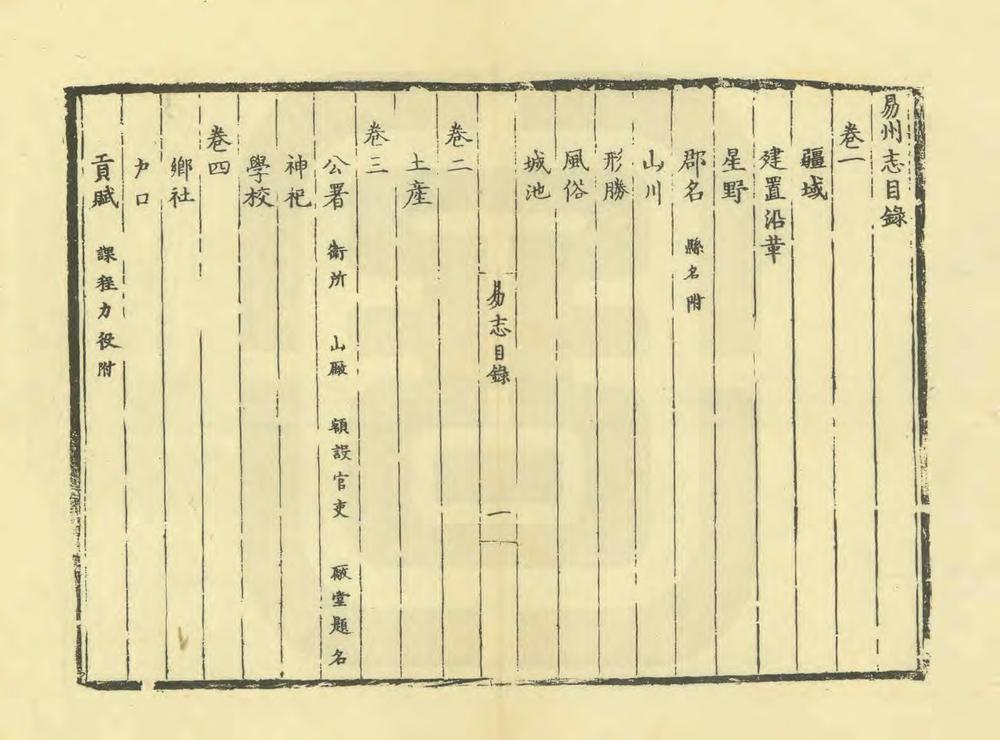 易州志目錄
卷一
疆域
建置沿革
星野
郡名 縣名附
山川
形勝
風俗
城池
易志目錄 一
卷二
土產
卷三
公署 衛所 山厰 額設官吏 厰堂題名
神祀
學校
卷四
鄉社
户口
貢賦 課程力役附